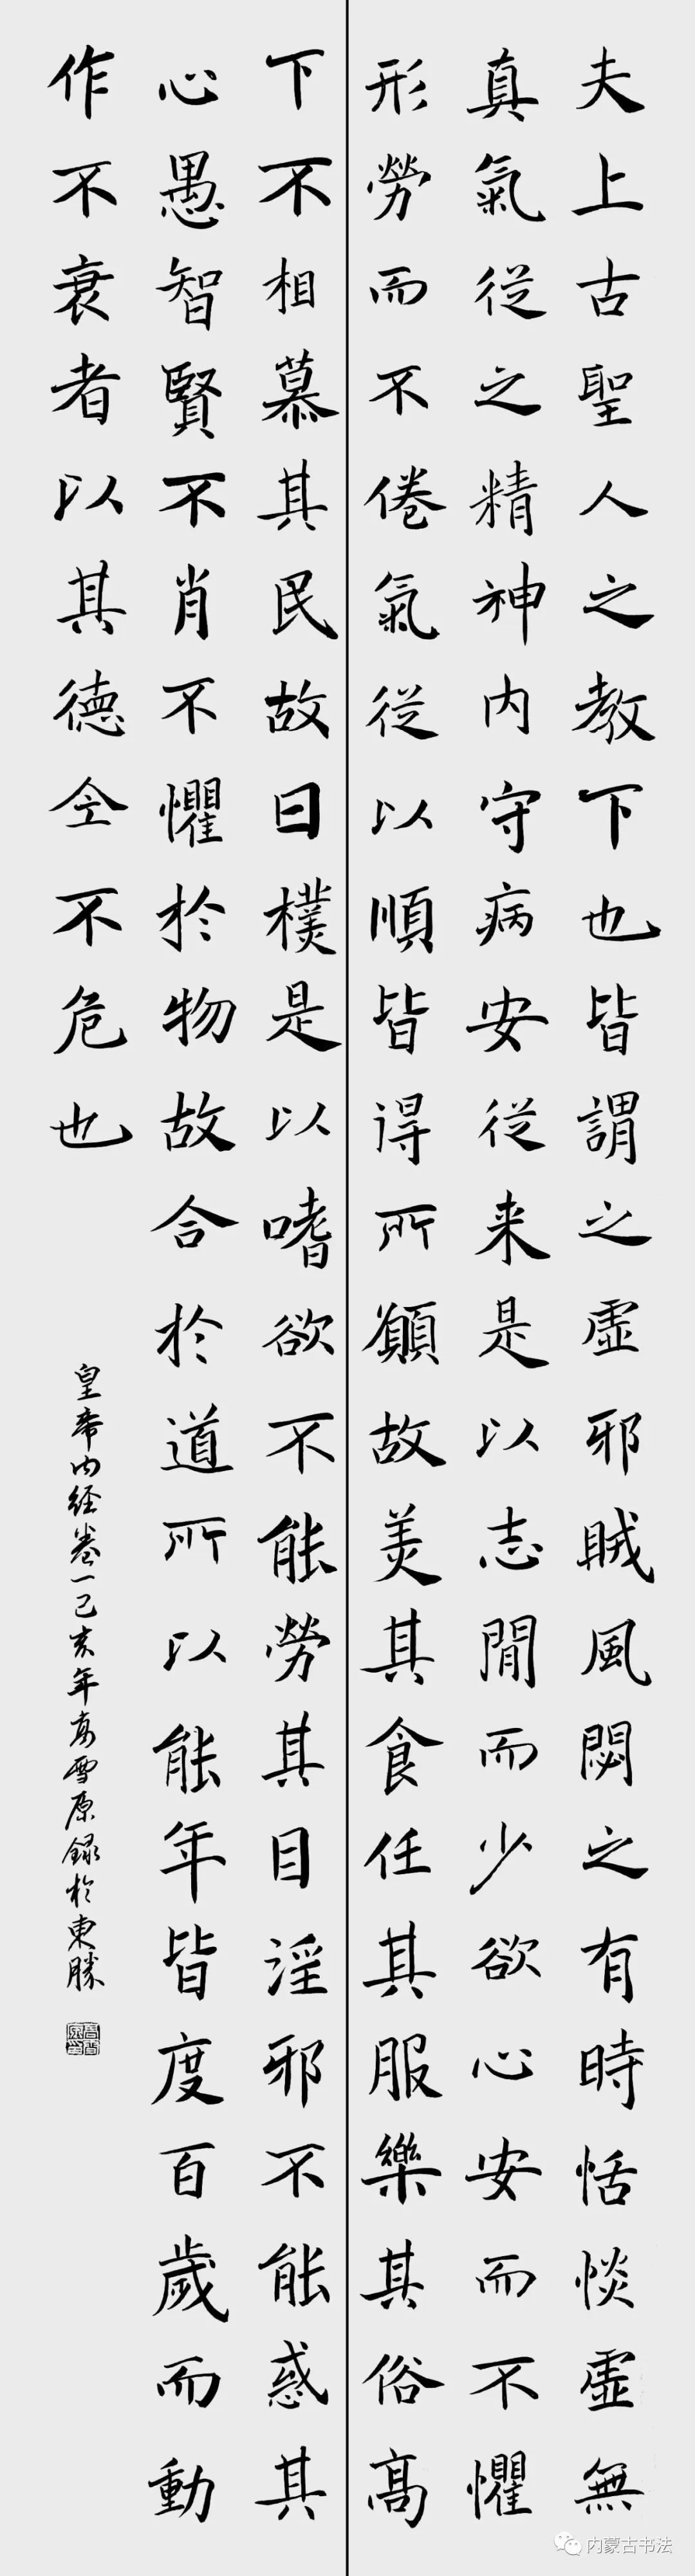 夫上古聖人之教下也皆謂之虛邪賊風閟之有時恬惔虛無
真氣從之精神内守病安從来是以志閒而少欲心安而不懼
形勞而不倦氣從以順皆得所願故美其食任其服樂其俗高
下不相慕其民故曰樸是以嗜欲不能勞其目淫邪不能惑其
心愚智賢不肖不懼於物故合於道所以能年皆度百歲而動
作不衰者以其德全不危也
皇帝内经卷一己亥年高雪原録於東勝
内蒙古书法